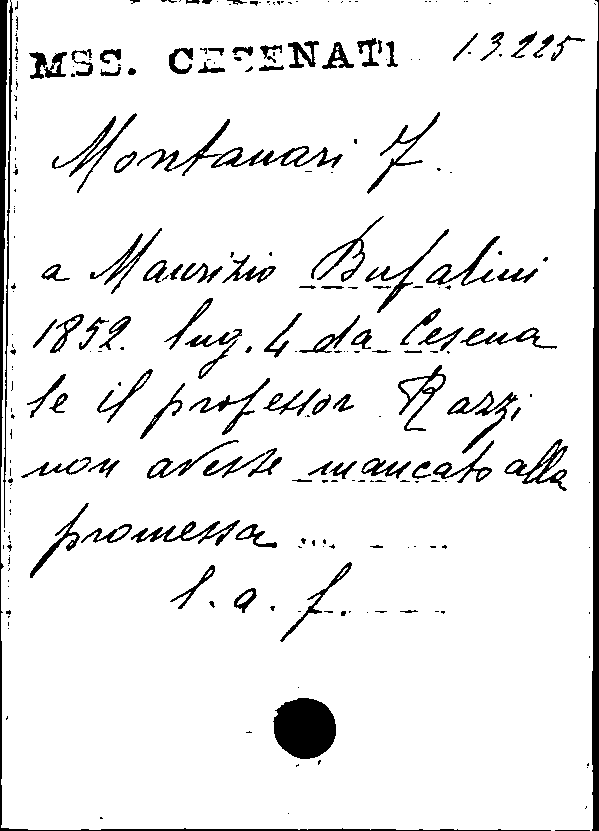 MSS. CESENATI 1.3.225
Montanari F.
a Maurizio Bufalini
1852 lug. 4 da Cesena
se il professor Razzi
non avesse mancato alla
promessa ...
l. a. f.